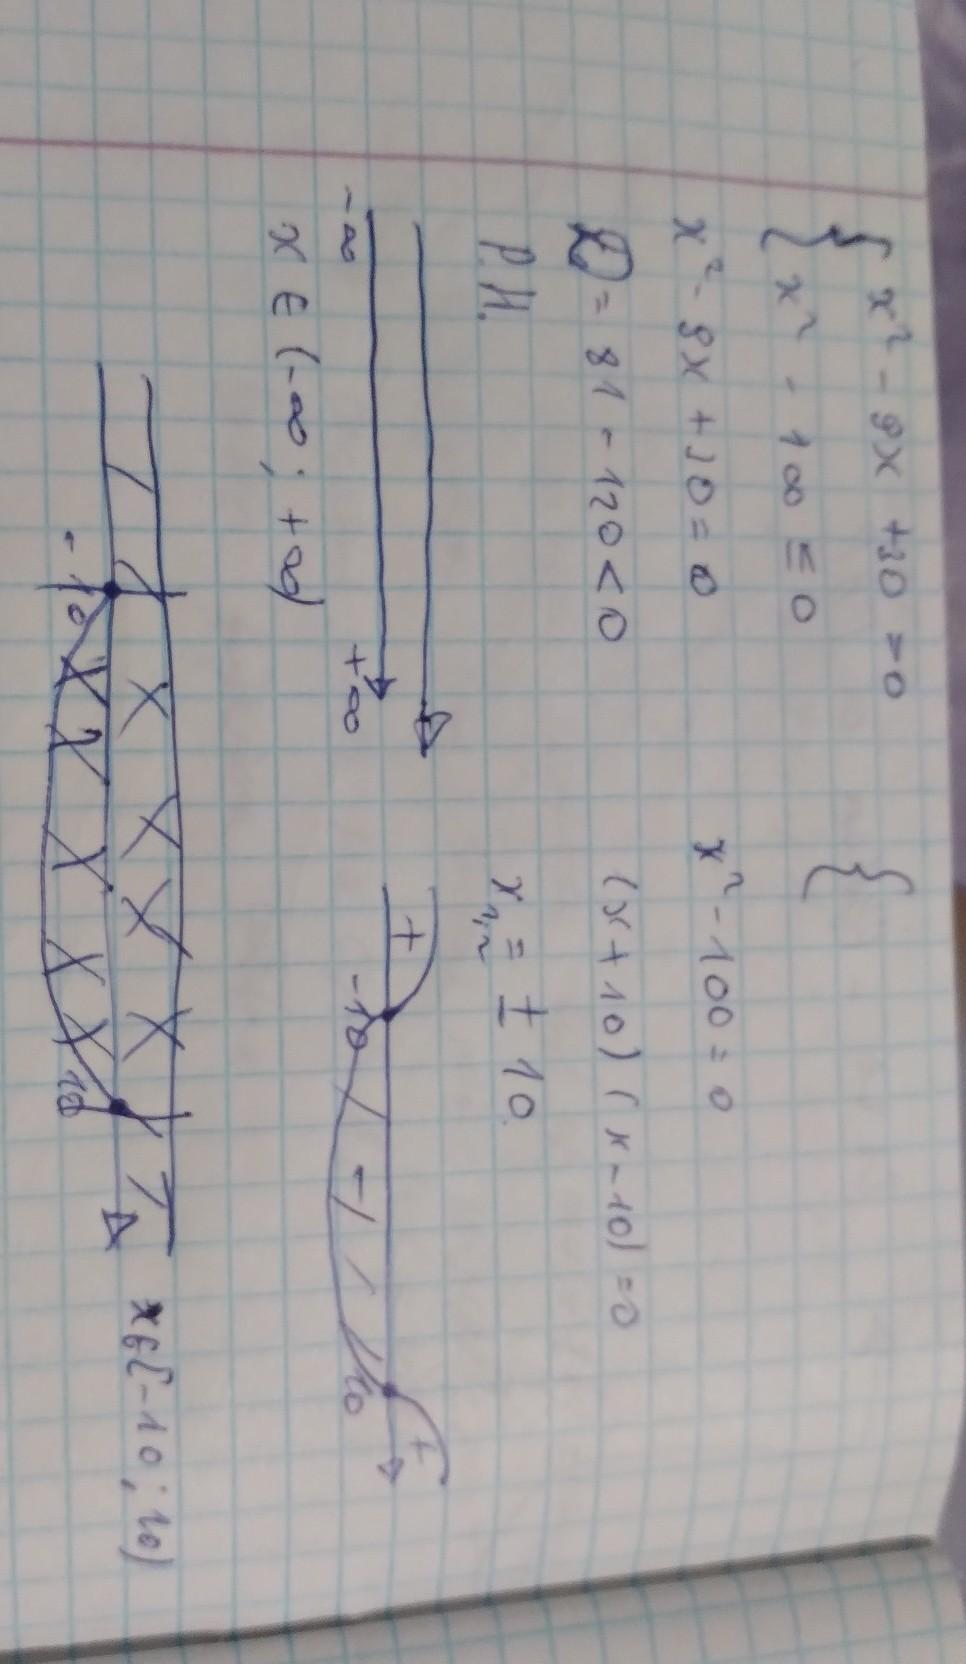 { x² - 9x + 30 > 0
{ x² - 100 ≤ 0
{
x² - 9x + 30 = 0
D = 81 - 120 < 0
-∞ +∞
x ∈ (-∞; +∞)
x² - 100 = 0
(x + 10) (x - 10) = 0
x₁,₂ = ± 10
+ -10 - 10 +
-10 10
x ∈ [-10; 10)